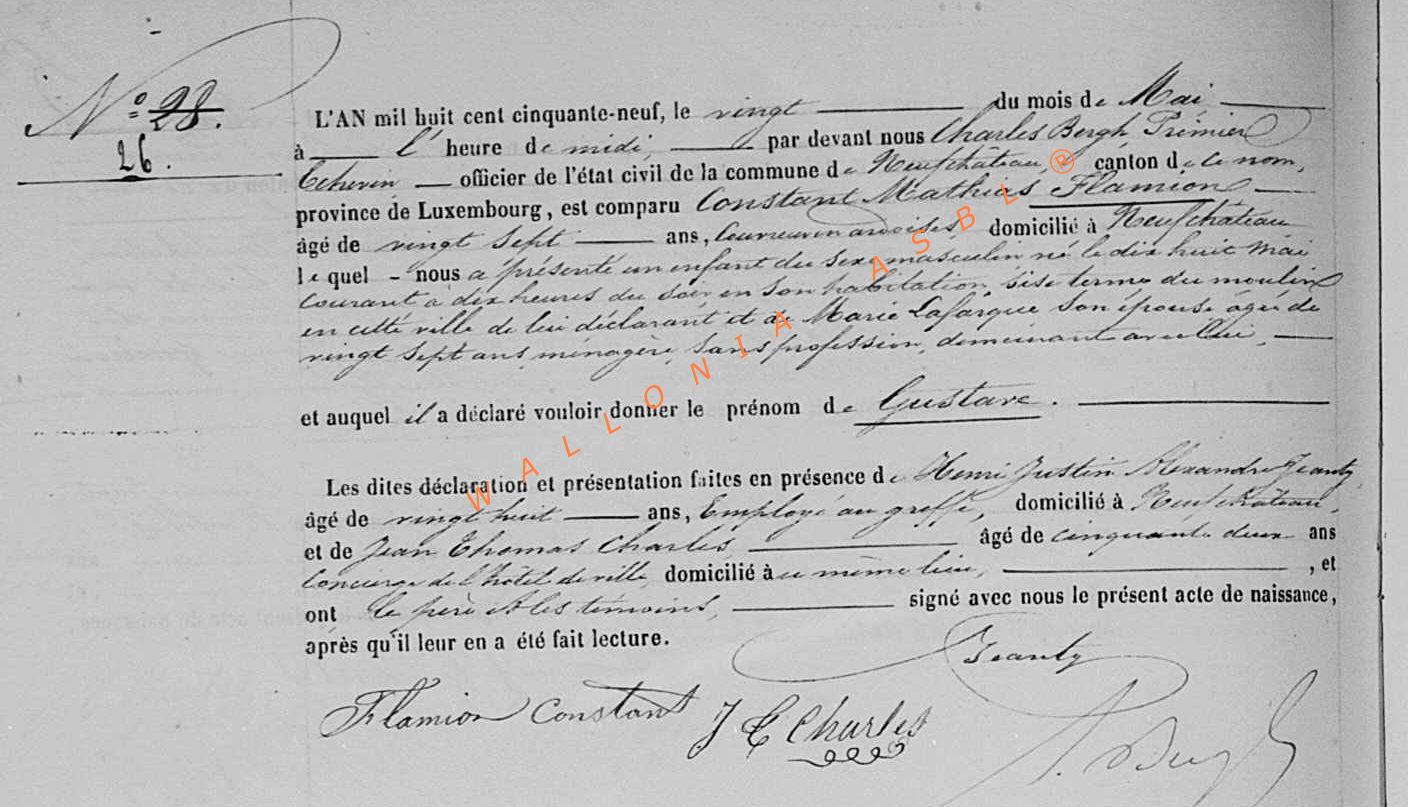 N° 28.
26.
L'AN mil huit cent cinquante-neuf, le vingt du mois de Mai
à l' heure de midi, par devant nous Charles Bergh Prémier
Echevin officier de l'état civil de la commune de Neufchâteau, canton de ce nom,
province de Luxembourg, est comparu Constant Mathias Flamion
âgé de vingt sept ans, Couvreur en ardoises, domicilié à Neufchâteau
lequel nous a présenté un enfant du sexe masculin né le dix huit Mai
courant à dix heures du soir en son habitation, sise terme du moulin
en cette ville de lui déclarant et de Marie Lafarque son épouse âgée de
vingt sept ans, ménagère, sans profession, demeurant avec lui,
et auquel il a déclaré vouloir donner le prénom de Gustave.
Les dites déclaration et présentation faites en présence de Henri Justin Alexandre Jeanty,
âgé de vingt huit ans, Employé au greffe, domicilié à Neufchâteau,
et de Jean Thomas Charles, âgé de cinquante deux ans
Concierge de l'hôtel de ville, domicilié à même lieu, , et
ont le père et les témoins, signé avec nous le présent acte de naissance,
après qu'il leur en a été fait lecture.
Jeanty
Flamion Constant J T Charles
Bergh
WALLONIA ASBL ®